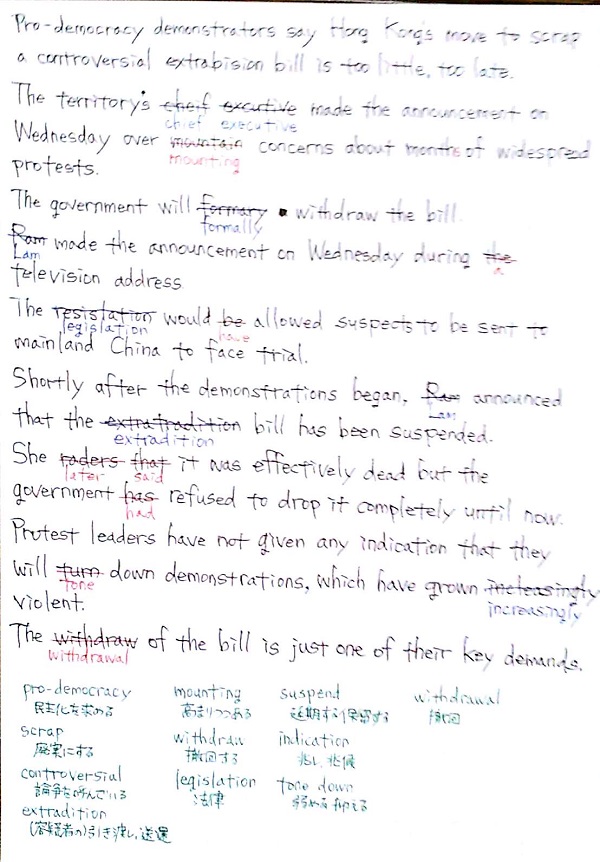 Pro-democracy demonstrators say Hong Kong's move to scrap
a controversial extrabision bill is too little, too late.
The territory's cheif excutive made the announcement on
chief executive
Wednesday over mountain concerns about months of widespread
mounting
protests.
The government will formary withdraw the bill.
formally
Ram made the announcement on Wednesday during the
Lam a
television address
The resislation would be allowed suspects to be sent to
legislation have
mainland China to face trial.
Shortly after the demonstrations began, Ram announced
Lam
that the extratradition bill has been suspended.
extradition
She raders that it was effectively dead but the
later said
government has refused to drop it completely until now.
had
Protest leaders have not given any indication that they
will turn down demonstrations, which have grown incleasingly
tone increasingly
violent.
The withdraw of the bill is just one of their key demands.
withdrawal
pro-democracy mounting suspend withdrawal
民主化を求める 高まりつつある 延期する、保留する 撤回
scrap withdraw indication
廃案にする 撤回する 兆し、兆候
controversial legislation tone down
論争を呼んでいる 法律 弱める、抑える
extradition
(容疑者の)引き渡し、送還